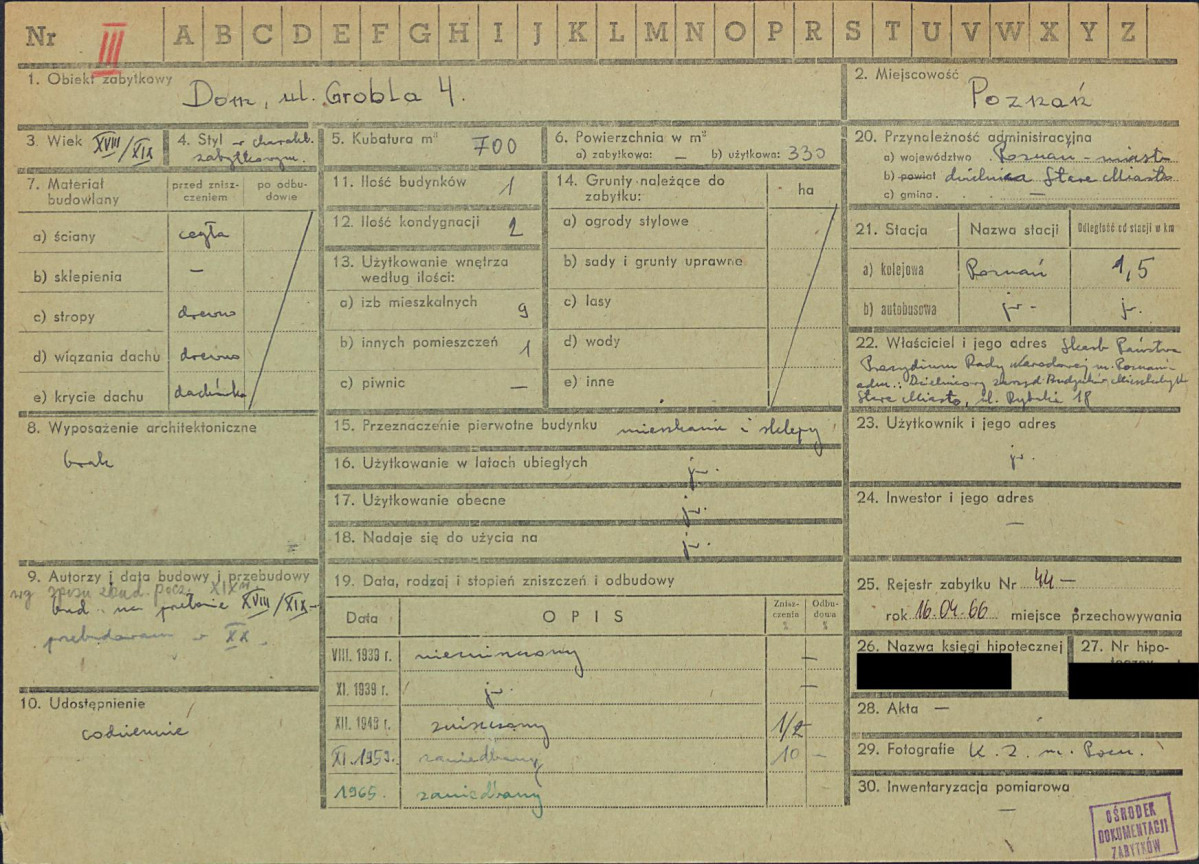 Nr III A B C D E F G H I J K L M N O P R S T U V W X Y Z
1. Obiekt zabytkowy Dom, ul. Grobla 4.
2. Miejscowość Poznań
3. Wiek XVIII/XIX
4. Styl o charakt. zabytkowym.
5. Kubatura m³ 700
6. Powierzchnia w m²
a) zabytkowa: — b) użytkowa: 330
7. Materiał budowlany
przed zniszczeniem
po odbudowie
a) ściany cegła
b) sklepienia —
c) stropy drewno
d) wiązania dachu drewno
e) krycie dachu dachówka
8. Wyposażenie architektoniczne
brak
9. Autorzy i data budowy i przebudowy
wg spisu zbud. pocz. XIX w.
bud. na przełomie XVIII/XIX
przebudowany w XX.
10. Udostępnienie
codziennie
11. Ilość budynków 1
12. Ilość kondygnacji 2
13. Użytkowanie wnętrza według ilości:
a) izb mieszkalnych 9
b) innych pomieszczeń 1
c) piwnic —
14. Grunty należące do zabytku: ha
a) ogrody stylowe
b) sady i grunty uprawne
c) lasy
d) wody
e) inne
15. Przeznaczenie pierwotne budynku mieszkania i sklepy
16. Użytkowanie w latach ubiegłych jw.
17. Użytkowanie obecne jw.
18. Nadaje się do użycia na jw.
19. Data, rodzaj i stopień zniszczeń i odbudowy
Data OPIS Zniszczenie % Odbudowa %
VIII. 1939 r. niezniszczony —
XI. 1939 r. jw. —
XII. 1949 r. zniszczony 1/2
XI. 1953. zaniedbany 10 —
1965. zaniedbany
20. Przynależność administracyjna
a) województwo Poznań - miasto
b) powiat dzielnica Stare Miasto
c) gmina —
21. Stacja Nazwa stacji Odległość od stacji w km
a) kolejowa Poznań 1,5
b) autobusowa jw. jw.
22. Właściciel i jego adres Skarb Państwa
Prezydium Rady Narodowej m. Poznań
adm.: Dzielnicowy Zarząd Budynków Mieszkalnych
Stare Miasto, ul. Rybaki 18
23. Użytkownik i jego adres
jw.
24. Inwestor i jego adres
—
25. Rejestr zabytku Nr 44 —
rok 16.04.66 miejsce przechowywania
26. Nazwa księgi hipotecznej
27. Nr hipoteczny
28. Akta —
29. Fotografie K. Z. m. Pozn.
30. Inwentaryzacja pomiarowa
—
OŚRODEK
DOKUMENTACJI
ZABYTKÓW